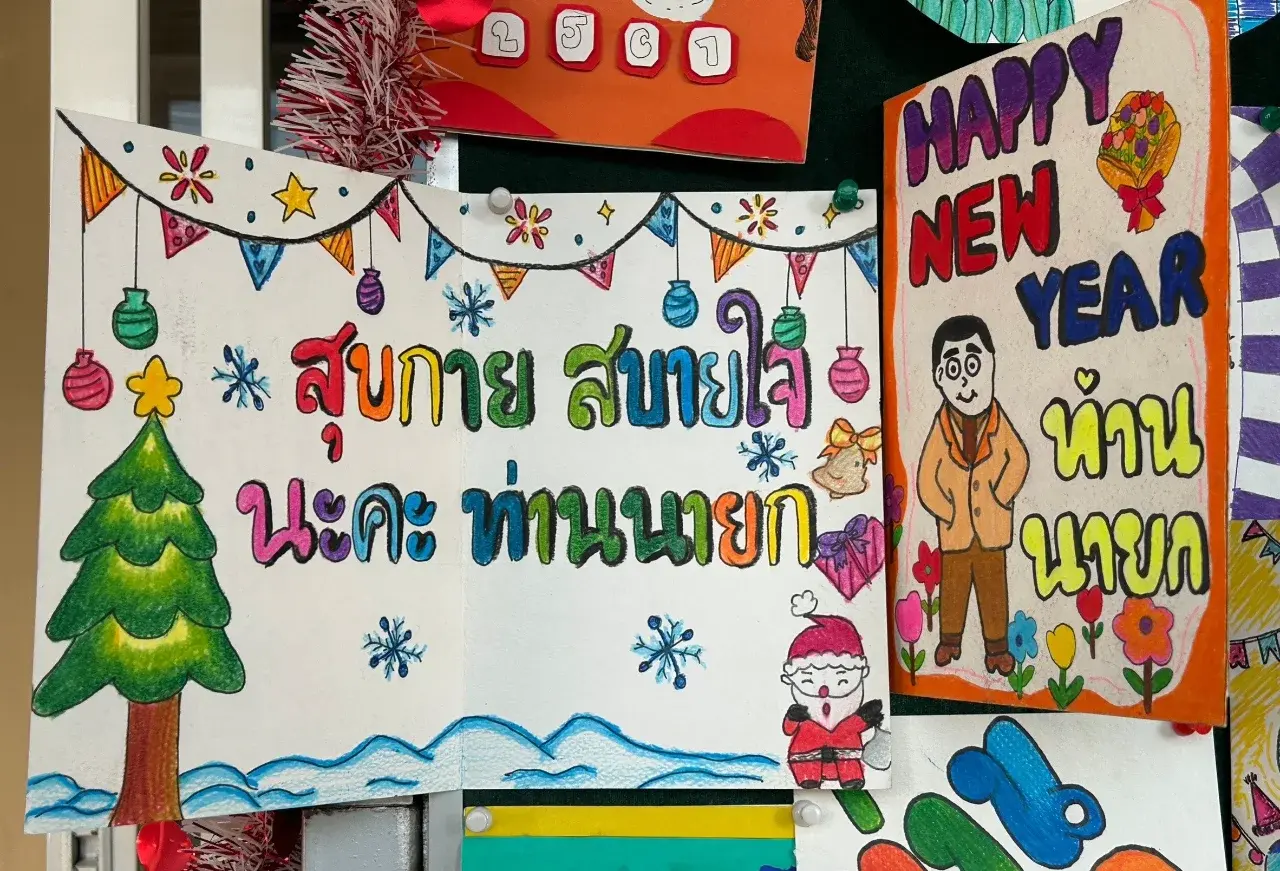 2567
สุขกาย สบายใจ
นะคะ ท่านนายก
HAPPY
NEW
YEAR
ท่าน
นายก